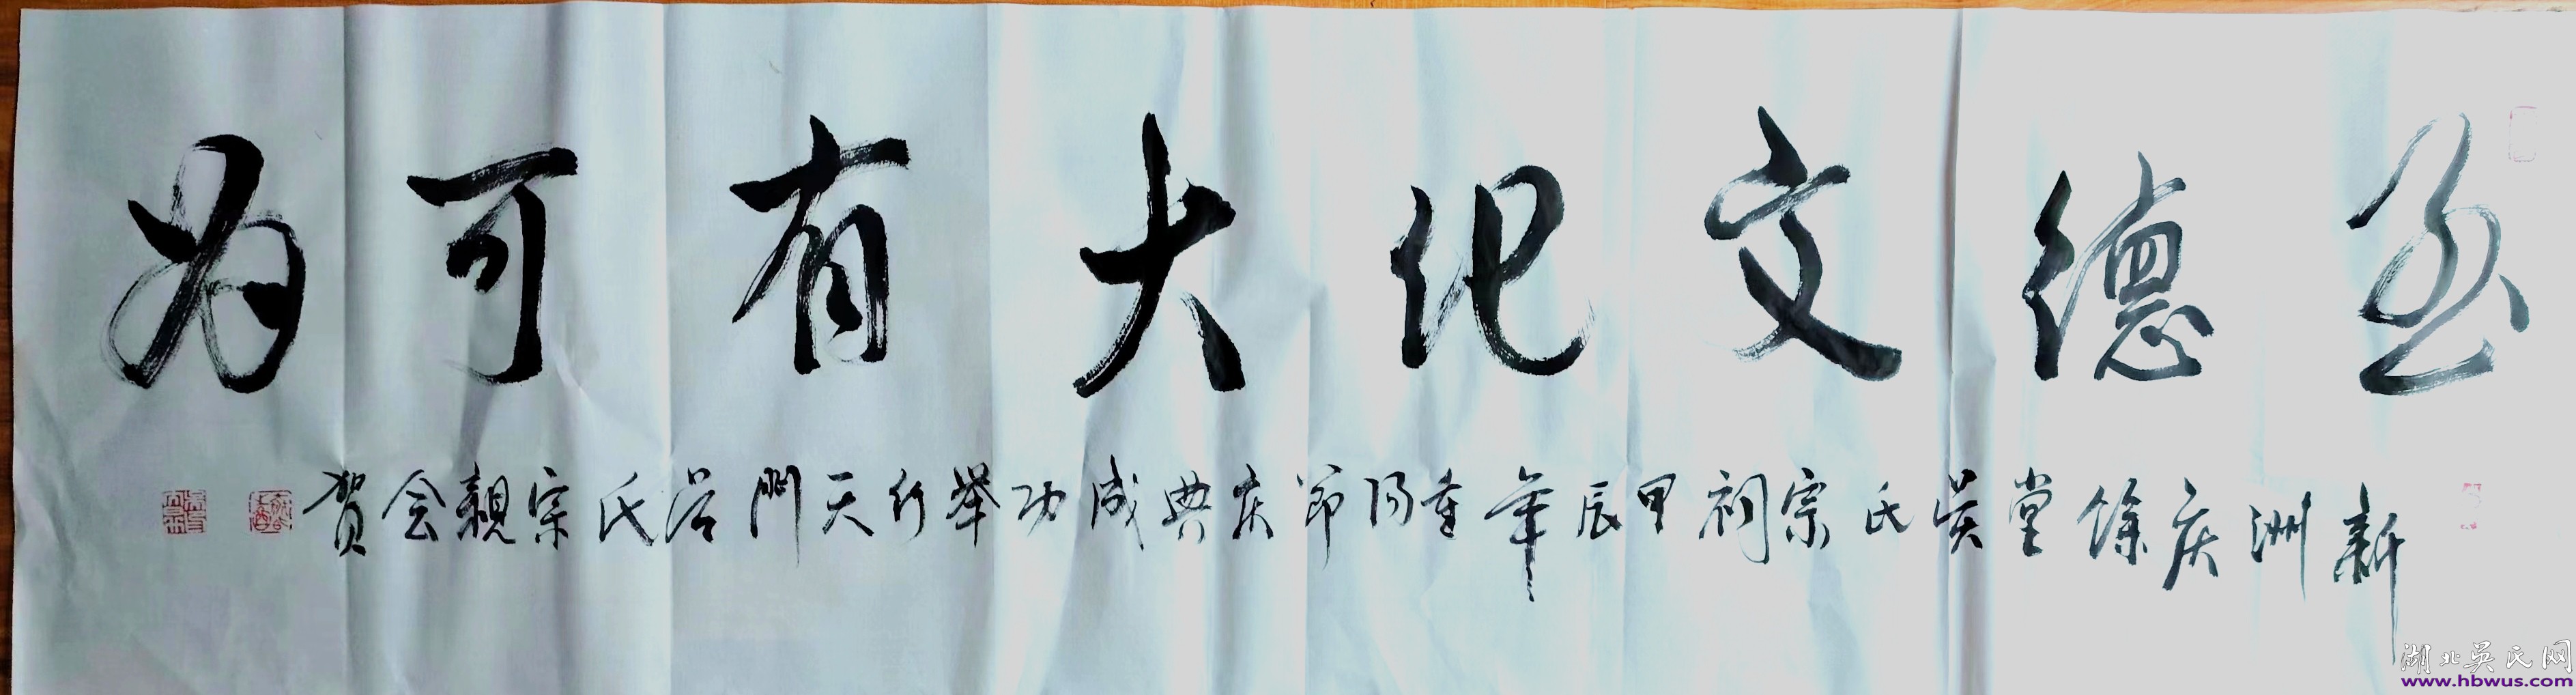 至德文化大有可为
新洲庆馀堂吴氏宗祠甲辰年重阳節庆典成功举行天門吴氏宗親会贺
湖北吴氏网
www.hbwus.com